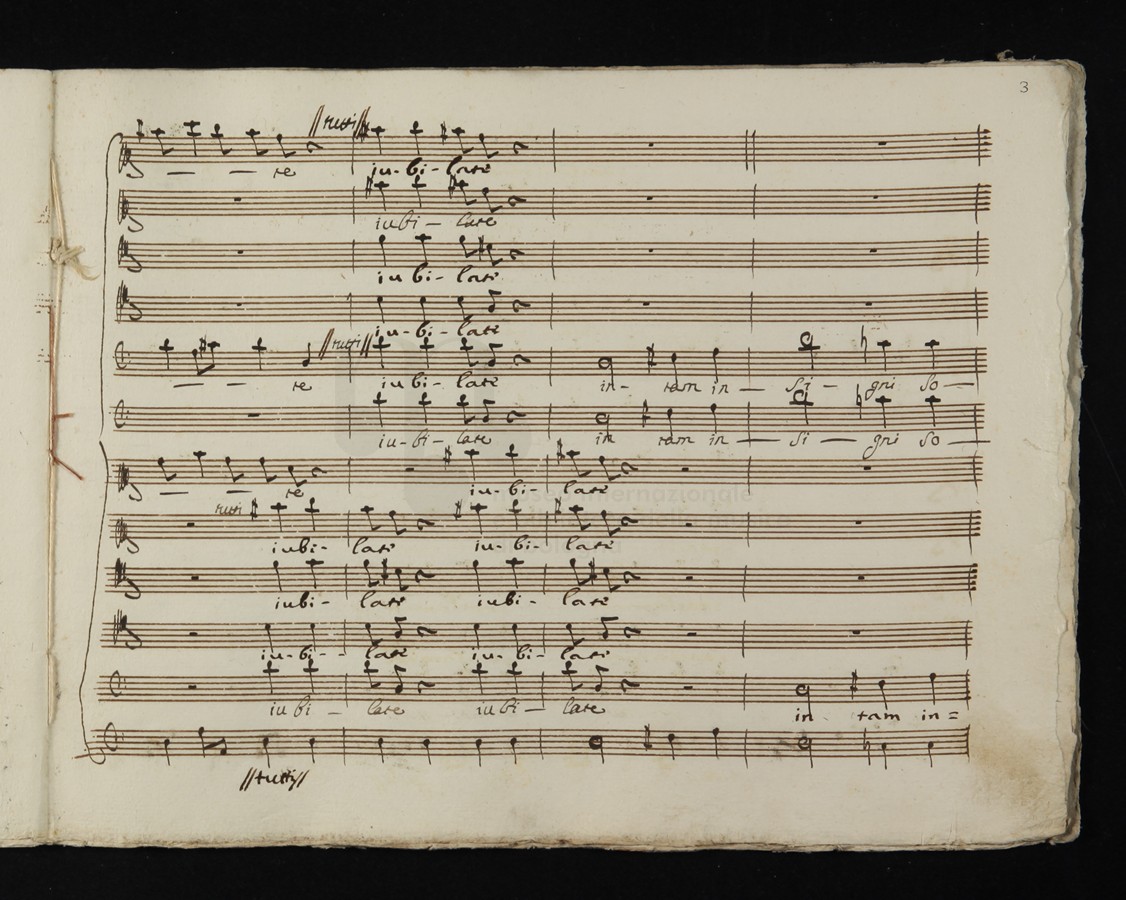 3
//tutti//
— — re iu-bi-late
iubi — late
iu bi- late
iu-bi-late
//tutti//
— — re iu bi- late in- tam in — si- gni so —
iu-bi-late in tam in — si — gni so —
— — re iu-bi- late
tutti
iubi- late iu-bi- late
iubi- late iubi- late
iu-bi- late iu-bi- late
iu bi — late iubi — late in tam in=
//tutti//
museo internazionale